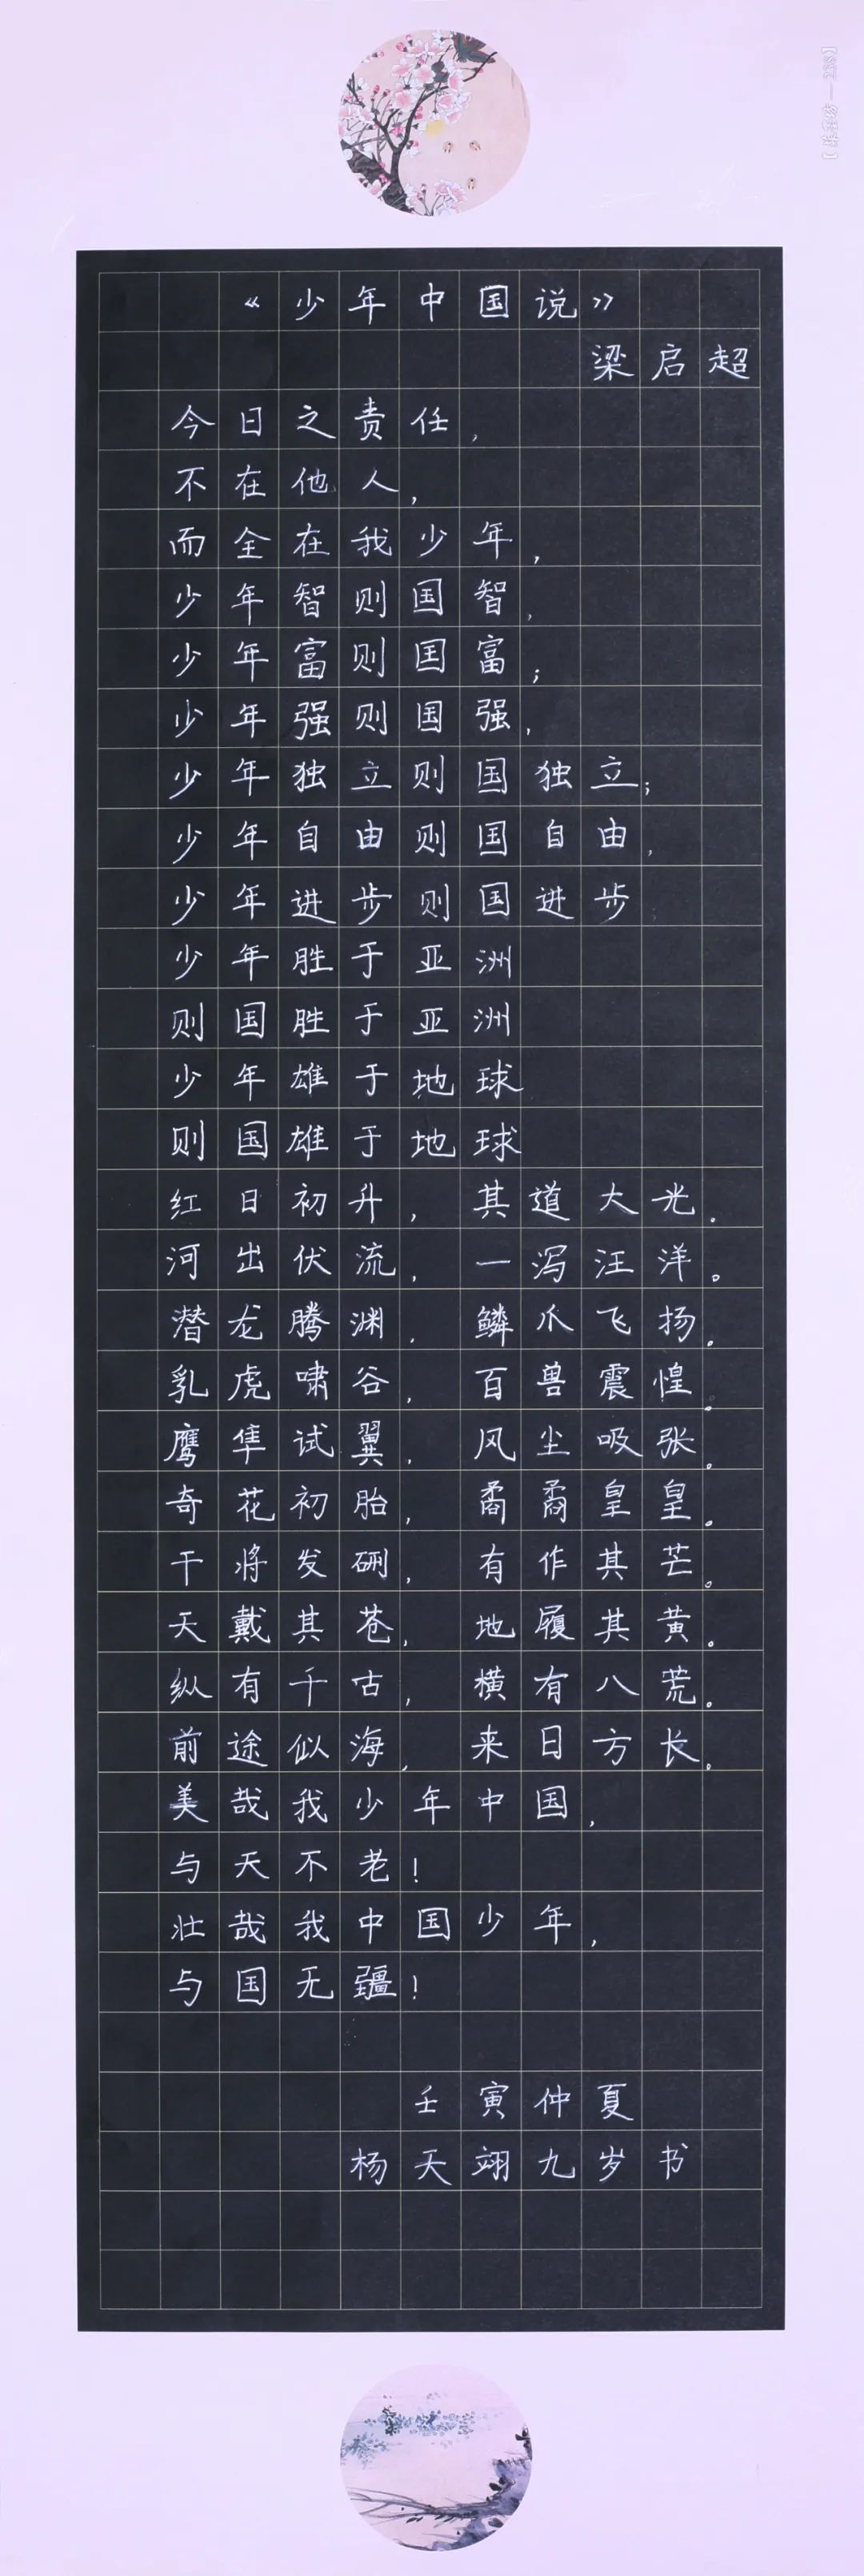 《少年中国说》
梁启超
今日之责任，
不在他人，
而全在我少年，
少年智则国智，
少年富则国富；
少年强则国强，
少年独立则国独立；
少年自由则国自由，
少年进步则国进步
少年胜于亚洲
则国胜于亚洲
少年雄于地球
则国雄于地球
红日初升， 其道大光。
河出伏流， 一泻汪洋。
潜龙腾渊， 鳞爪飞扬。
乳虎啸谷， 百兽震惶。
鹰隼试翼， 风尘吸张。
奇花初胎， 矞矞皇皇。
干将发硎， 有作其芒。
天戴其苍， 地履其黄。
纵有千古， 横有八荒。
前途似海， 来日方长。
美哉我少年中国，
与天不老！
壮哉我中国少年，
与国无疆！
壬寅仲夏
杨天翊九岁书